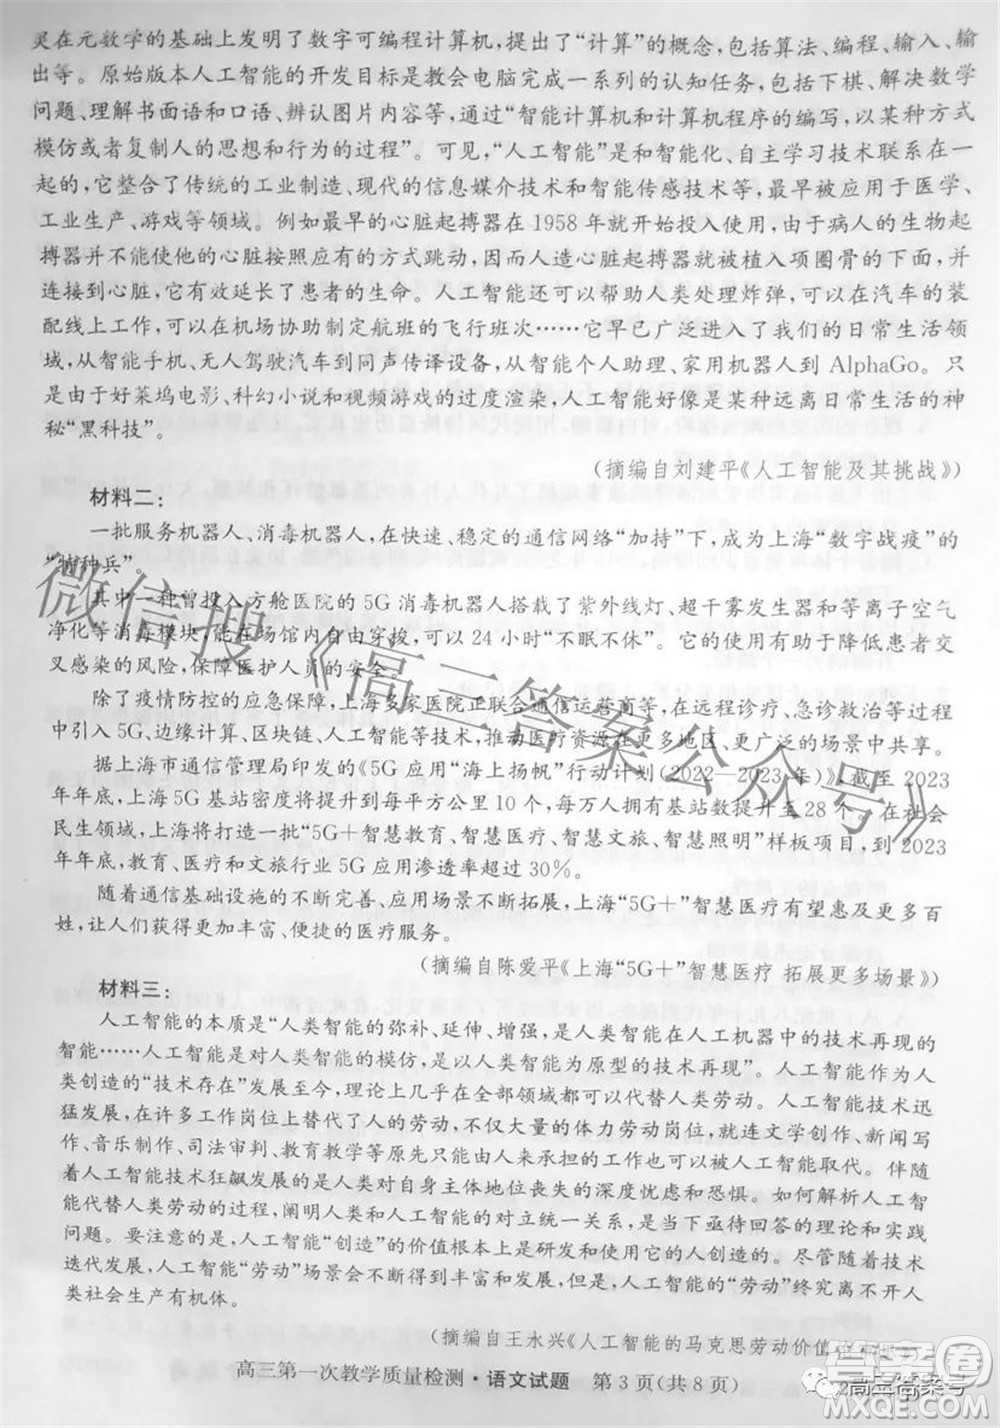 灵在元数学的基础上发明了数字可编程计算机，提出了“计算”的概念，包括算法、编程、输入、输
出等。原始版本人工智能的开发目标是教会电脑完成一系列的认知任务，包括下棋、解决数学
问题、理解书面语和口语、辨认图片内容等，通过“智能计算机和计算机程序的编写，以某种方式
模仿或者复制人的思想和行为的过程”。可见，“人工智能”是和智能化、自主学习技术联系在一
起的，它整合了传统的工业制造、现代的信息媒介技术和智能传感技术等，最早被应用于医学、
工业生产、游戏等领域。例如最早的心脏起搏器在 1958 年就开始投入使用，由于病人的生物起
搏器并不能使他的心脏按照应有的方式跳动，因而人造心脏起搏器就被植入项圈骨的下面，并
连接到心脏，它有效延长了患者的生命。人工智能还可以帮助人类处理炸弹，可以在汽车的装
配线上工作，可以在机场协助制定航班的飞行班次……它早已广泛进入了我们的日常生活领
域，从智能手机、无人驾驶汽车到同声传译设备，从智能个人助理、家用机器人到 AlphaGo。只
是由于好莱坞电影、科幻小说和视频游戏的过度渲染，人工智能好像是某种远离日常生活的神
秘“黑科技”。
（摘编自刘建平《人工智能及其挑战》）
材料二：
一批服务机器人、消毒机器人，在快速、稳定的通信网络“加持”下，成为上海“数字战疫”的
“特种兵”。
其中一种曾投入方舱医院的 5G 消毒机器人搭载了紫外线灯、超干雾发生器和等离子空气
净化等消毒模块，能在场馆内自由穿梭，可以 24 小时“不眠不休”。它的有助于降低患者交
叉感染的风险，保障医护人员的安全。
除了疫情防控的应急保障，上海多家医院正联合通信运营商等，在远程诊疗、急诊救治等过程
中引入 5G、边缘计算、区块链、人工智能等技术，推动医疗资源在更多地区、更广泛的场景中共享。
据上海市通信管理局印发的《5G 应用“海上扬帆”行动计划（2022—2023 年）》，截至 2023
年年底，上海 5G 基站密度将提升到每平方公里 10 个，每万人拥有基站数提升至 28 个。在社会
民生领域，上海将打造一批“5G＋智慧教育、智慧医疗、智慧文旅、智慧照明”样板项目，到 2023
年年底，教育、医疗和文旅行业 5G 应用渗透率超过 30%。
随着通信基础设施的不断完善、应用场景不断拓展，上海“5G＋”智慧医疗有望惠及更多百
姓，让人们获得更加丰富、便捷的医疗服务。
（摘编自陈爱平《上海“5G＋”智慧医疗 拓展更多场景》）
材料三：
人工智能的本质是“人类智能的弥补、延伸、增强，是人类智能在人工机器中的技术再现的
智能……人工智能是对人类智能的模仿，是以人类智能为原型的技术再现”。人工智能作为人
类创造的“技术存在”发展至今，理论上几乎在全部领域都可以代替人类劳动。人工智能技术迅
猛发展，在许多工作岗位上替代了人的劳动，不仅大量的体力劳动岗位，就连文学创作、新闻写
作、音乐制作、司法审判、教育教学等原先只能由人来承担的工作也可以被人工智能取代。伴随
着人工智能技术狂飙发展的是人类对自身主体地位丧失的深度忧虑和恐惧。如何解析人工智
能代替人类劳动的过程，阐明人类和人工智能的对立统一关系，是当下亟待回答的理论和实践
问题。要注意的是，人工智能“创造”的价值根本上是研发和使用它的人创造的。尽管随着技术
迭代发展，人工智能“劳动”场景会不断得到丰富和发展，但是，人工智能的“劳动”终究离不开人
类社会生产有机体。
（摘编自王永兴《人工智能的马克思劳动价值
高三第一次教学质量检测·语文试题　第 3 页（共 8 页）
微信搜《高三答案公众号》
高三答案号
答案圈
MXQE.COM